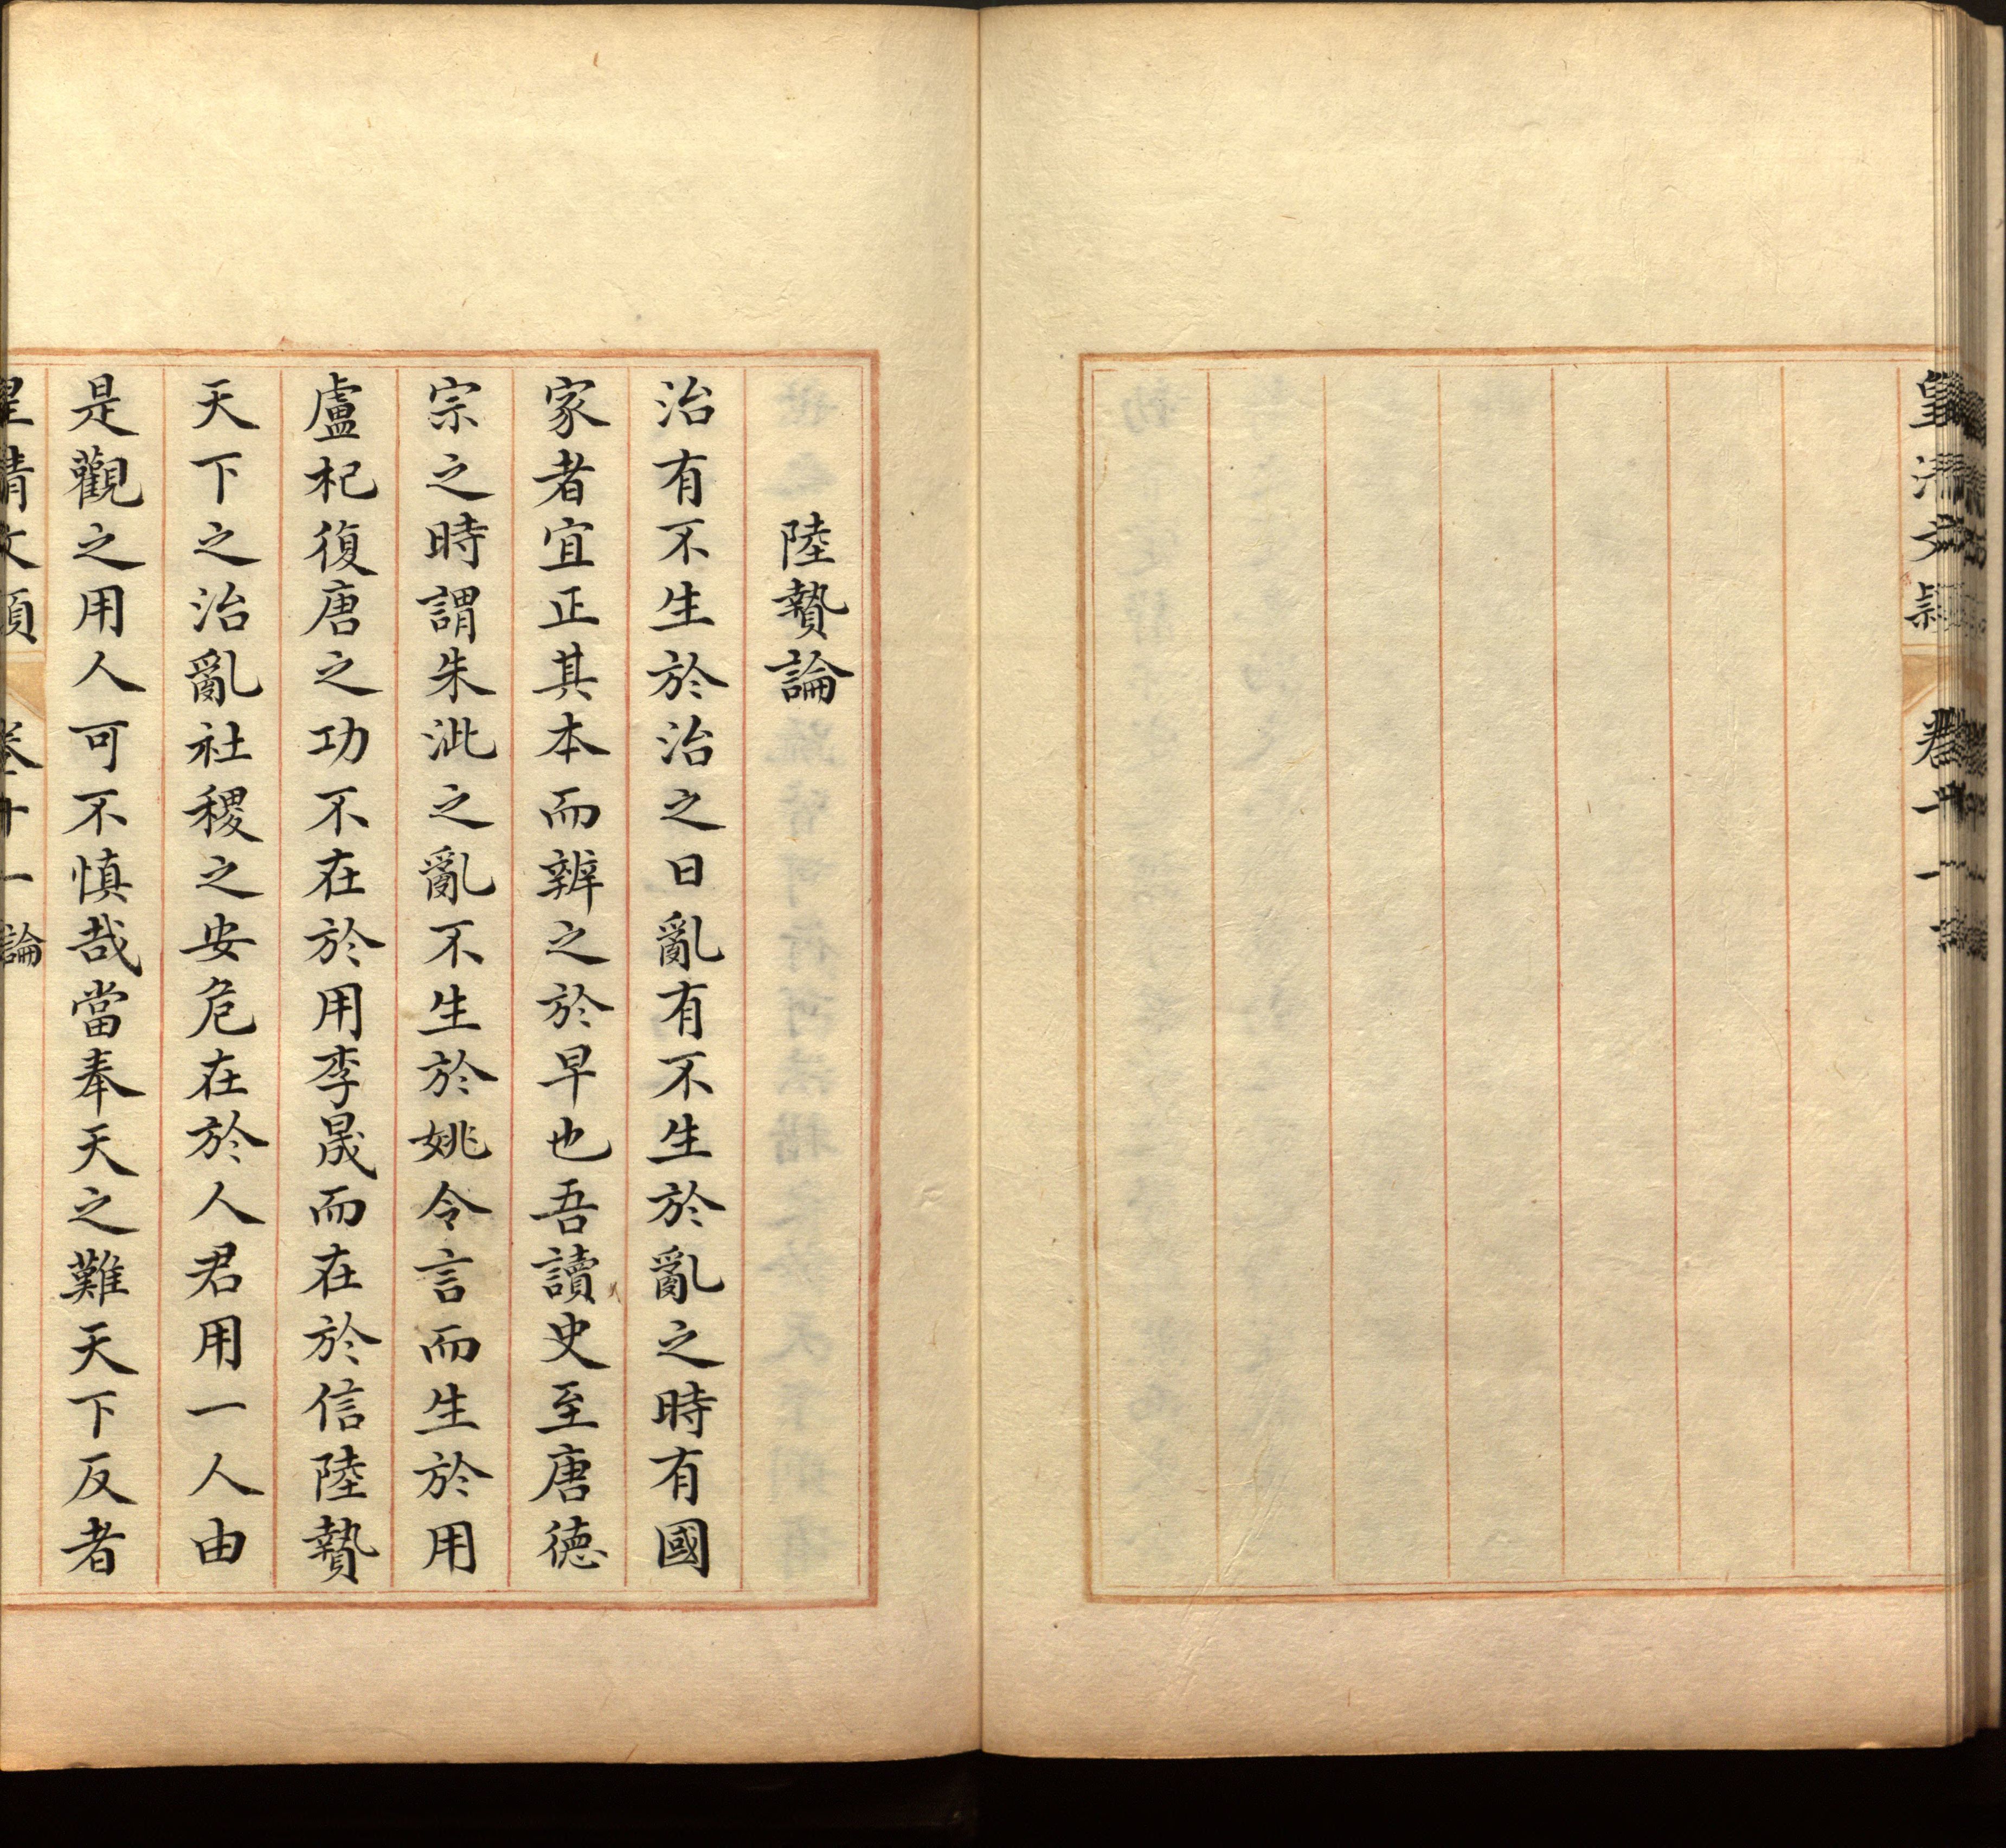 皇清文穎 卷十一
陸贄論
治有不生於治之日亂有不生於亂之時有國
家者宜正其本而辨之於早也吾讀史至唐德
宗之時謂朱泚之亂不生於姚令言而生於用
盧杞復唐之功不在於用李晟而在於信陸贄
天下之治亂社稷之安危在於人君用一人由
是觀之用人可不慎哉當奉天之難天下反者
皇清文穎 卷十一 論